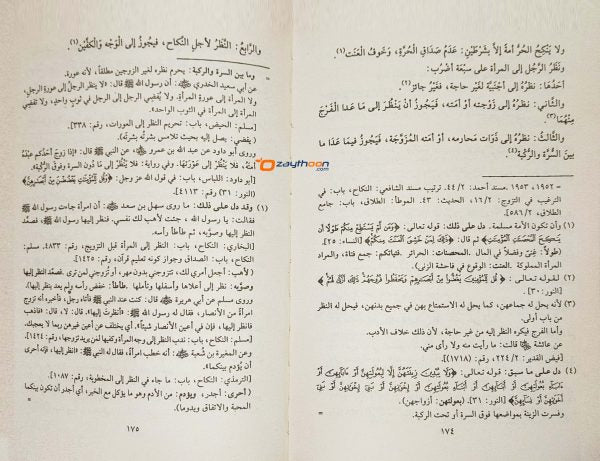 ولا يَنْكِحُ الحُرُّ أمةً إلاَّ بشَرطَيْنِ: عَدَمُ صَدَاقِ الحُرَّةِ، وخَوفُ العَنَت (١).
ونَظَرُ الرَّجُلِ إلى المرأةِ على سَبْعَةِ أضْرُبٍ:
أحَدُهَا: نظرُهُ إلى أجْنَبيَّةٍ لغَيرِ حاجةٍ، فَغَيرُ جائزٍ (٢).
والثَّاني: نظرُهُ إلى زَوْجَتِهِ أوْ أمَتِهِ، فَيَجُوزُ أنْ يَنْظُرَ إلى مَا عَدا الفَرْجَ
مِنْهُمَا (٣)
والثَّالثُ: نظرُهُ إلى ذَوَاتِ مَحَارمِهِ، أو أمَتِهِ المُزَوَّجَةِ، فَيَجُوزُ فيمَا عَدَا ما
بينَ السُّرَّةِ والرُّكبَةِ (٤)
= ١٩٥٢، ١٩٥٣. مسند أحمد: ٤٤/٢. ترتيب مسند الشافعي: النكاح، باب: في
الترغيب في التزوج: ١٢/٢، الحديث: ٤٣. الموطأ: الطلاق، باب: جامع
الطلاق، ٥٨٦/٢].
(١) لأن الأمة مسلمة. دل على ذلك: قوله تعالى: ﴿وَمَن لَّمْ يَسْتَطِعْ مِنكُمْ طَوْلًا أَن
يَنكِحَ الْمُحْصَنَاتِ الْمُؤْمِنَاتِ﴾ ثم قال: ﴿ذَٰلِكَ لِمَنْ خَشِيَ الْعَنَتَ مِنكُمْ﴾ [النساء: ٢٥].
(طولاً: غِنىً وفضلاً في المال. المحصنات: الحرائر. فتياتكم: جمع فتاة، والمراد
المرأة المملوكة. العنت: الوقوع في فاحشة الزنى).
(٢) لقوله تعالى: ﴿قُل لِّلْمُؤْمِنِينَ يَغُضُّوا مِنْ أَبْصَارِهِمْ وَيَحْفَظُوا فُرُوجَهُمْ ذَٰلِكَ أَزْكَىٰ لَهُمْ﴾
[النور: ٣٠].
(٣) لأنه يحل له جماعهن، كما يحل له الاستمتاع بهن في جميع بدنهن، فيحل له النظر
من باب أولى.
وأما الفرج فيكره النظر إليه من غير حاجة، لأن ذلك خلاف الأدب.
عن عائشة رضي الله عنها قالت: ما رأيت منه ولا رأى مني.
[فيض القدير: ٢٢٤/٢، رقم (١٧١٨)].
(٤) دل على ما سبق: قوله تعالى: ﴿وَلَا يُبْدِينَ زِينَتَهُنَّ إِلَّا لِبُعُولَتِهِنَّ أَوْ آبَائِهِنَّ أَوْ
آبَاءِ بُعُولَتِهِنَّ أَوْ أَبْنَائِهِنَّ أَوْ أَبْنَاءِ بُعُولَتِهِنَّ أَوْ إِخْوَانِهِنَّ أَوْ بَنِي إِخْوَانِهِنَّ أَوْ بَنِي
أَخَوَاتِهِنَّ﴾ [النور: ٣١]. (بعولتهن: أزواجهن).
وفسرت الزينة بمواضعها فوق السرة أو تحت الركبة. =
١٧٤
والرَّابعُ: النَّظَرُ لأجلِ النِّكاحِ، فيَجُوزُ إلى الْوَجْهِ والْكَفَّيْنِ (١).
= وما بين السرة والركبة: يحرم نظره لغير الزوجين مطلقاً، لأنه عورة.
عن أبي سعيد الخدري رضي الله عنه: أن رسول الله ﷺ قال: «لا يَنظر الرجلُ إلى عورةِ الرجل،
ولا المرأة إلى عورةِ المرأةِ. ولا يُفضِي الرجل إلى الرجل في ثوبٍ واحدٍ، ولا تفضِي
المرأة إلى المرأة في الثوب الواحد».
[مسلم: الحيض، باب: تحريم النظر إلى العورات، رقم: ٣٣٨].
(يفضي: يصل إليه بحيث تلامس بشرتُه بشرتَه).
وروى أبو داود عن عبد الله بن عمرو رضي الله عنه، عن النبي ﷺ قال: «إذا زوجَ أحدُكم عبدَه
أمتَه، فلا يَنْظُرْ إلى عَوْرَتِهَا. وفي رواية: فلا يَنْظُرْ إلى مَا دُونَ السرةِ وفوقَ الركبةِ».
[أبو داود: اللباس، باب: في قول الله عز وجل: ﴿وَقُل لِّلْمُؤْمِنَاتِ يَغْضُضْنَ مِنْ أَبْصَارِهِنَّ﴾
(النور: ٣١) رقم: ٤١١٣].
(١) وقد دل على ذلك: ما روى سهل بن سعد رضي الله عنه: أن امرأة جاءت رسول الله ﷺ
فقالت: يا رسول الله، جئت لأهب لك نفسي. فنظر إليها رسول الله ﷺ، فصعَّد
النظر إليها وصوَّبه، ثم طأطأ رأسه.
[البخاري: النكاح، باب: النظر إلى المرأة قبل التزويج، رقم: ٤٨٣٣. مسلم:
النكاح، باب: الصداق وجواز كونه تعليم قرآن، رقم: ١٤٢٥].
(لأهب: أجعل أمري لك، تتزوجني بدون مهر، أو تُزوجني لمن ترى. فصعّد النظر إليها
وصوَّبه: نظر إلى أعلاها وأسفلها وتأملها. طأطأ: خفض رأسه ولم يعد ينظر إليها).
وروى مسلم عن أبي هريرة رضي الله عنه قال: كنت عند النبي ﷺ، فأتاه رجل، فأخبره أنه تزوج
امرأة من الأنصار، فقال له رسول الله ﷺ: «أنظرتَ إليها». قال: لا، قال: «فاذهب
فانظر إليها، فإن في أعين الأنصار شيئاً». أي يختلف عن أعين غيرهن ربما لا يعجبك.
[مسلم: النكاح، باب: ندب النظر إلى وجه المرأة وكفيها لمن يريد تزوجها، رقم: ١٤٢٤].
وعن المغيرة بن شُعبة رضي الله عنه: أنه خطب امرأة، فقال له النبي ﷺ: «انظر إليها، فإنه أحرى
أن يُؤدم بينكما».
[الترمذي: النكاح، باب: ما جاء في النظر إلى المخطوبة، رقم: ١٠٨٧].
(أحرى: أجدر، ويؤدم: من الأدم وهو ما يؤكل مع الخبز، أي أجدر أن تكون بينكما
المحبة والاتفاق ويدوما). =
١٧٥
zaythoon.com